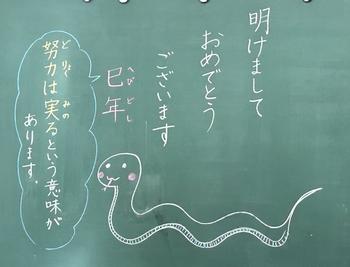 明けまして
おめでとう
ございます
巳年
へびどし
努力は実るという意味が
どりょく
みの
あります。